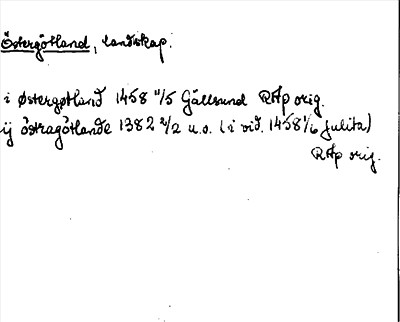 Östergötland, landskap.
i Østergøtland 1458 11/5 Gällsund RAp orig.
ij östragötlande 1382 2/2 u.o. (i vid. 1458 1/6 Julita)
RAp orig.